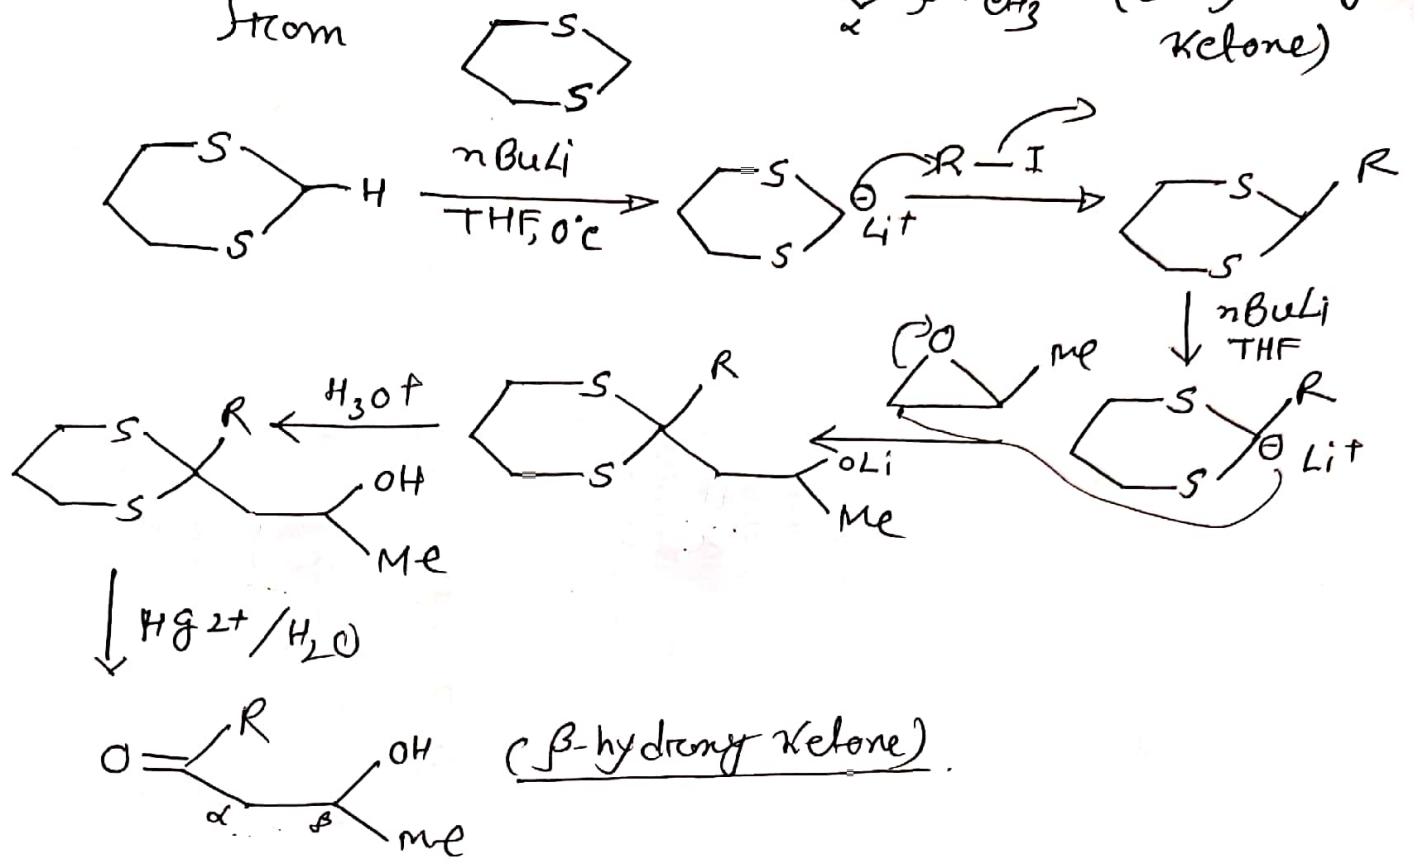 from
α β CH3
Ketone)
S
S
S
S
H
nBuLi
THF, 0°C
S
S
⊖
Li+
R-I
S
S
R
nBuLi
THF
S
S
R
⊖ Li+
O
Me
S
S
R
OLi
Me
H3O+
S
S
R
OH
Me
Hg 2+/H2O
O
R
OH
α
β
Me
(β-hydroxy Ketone).